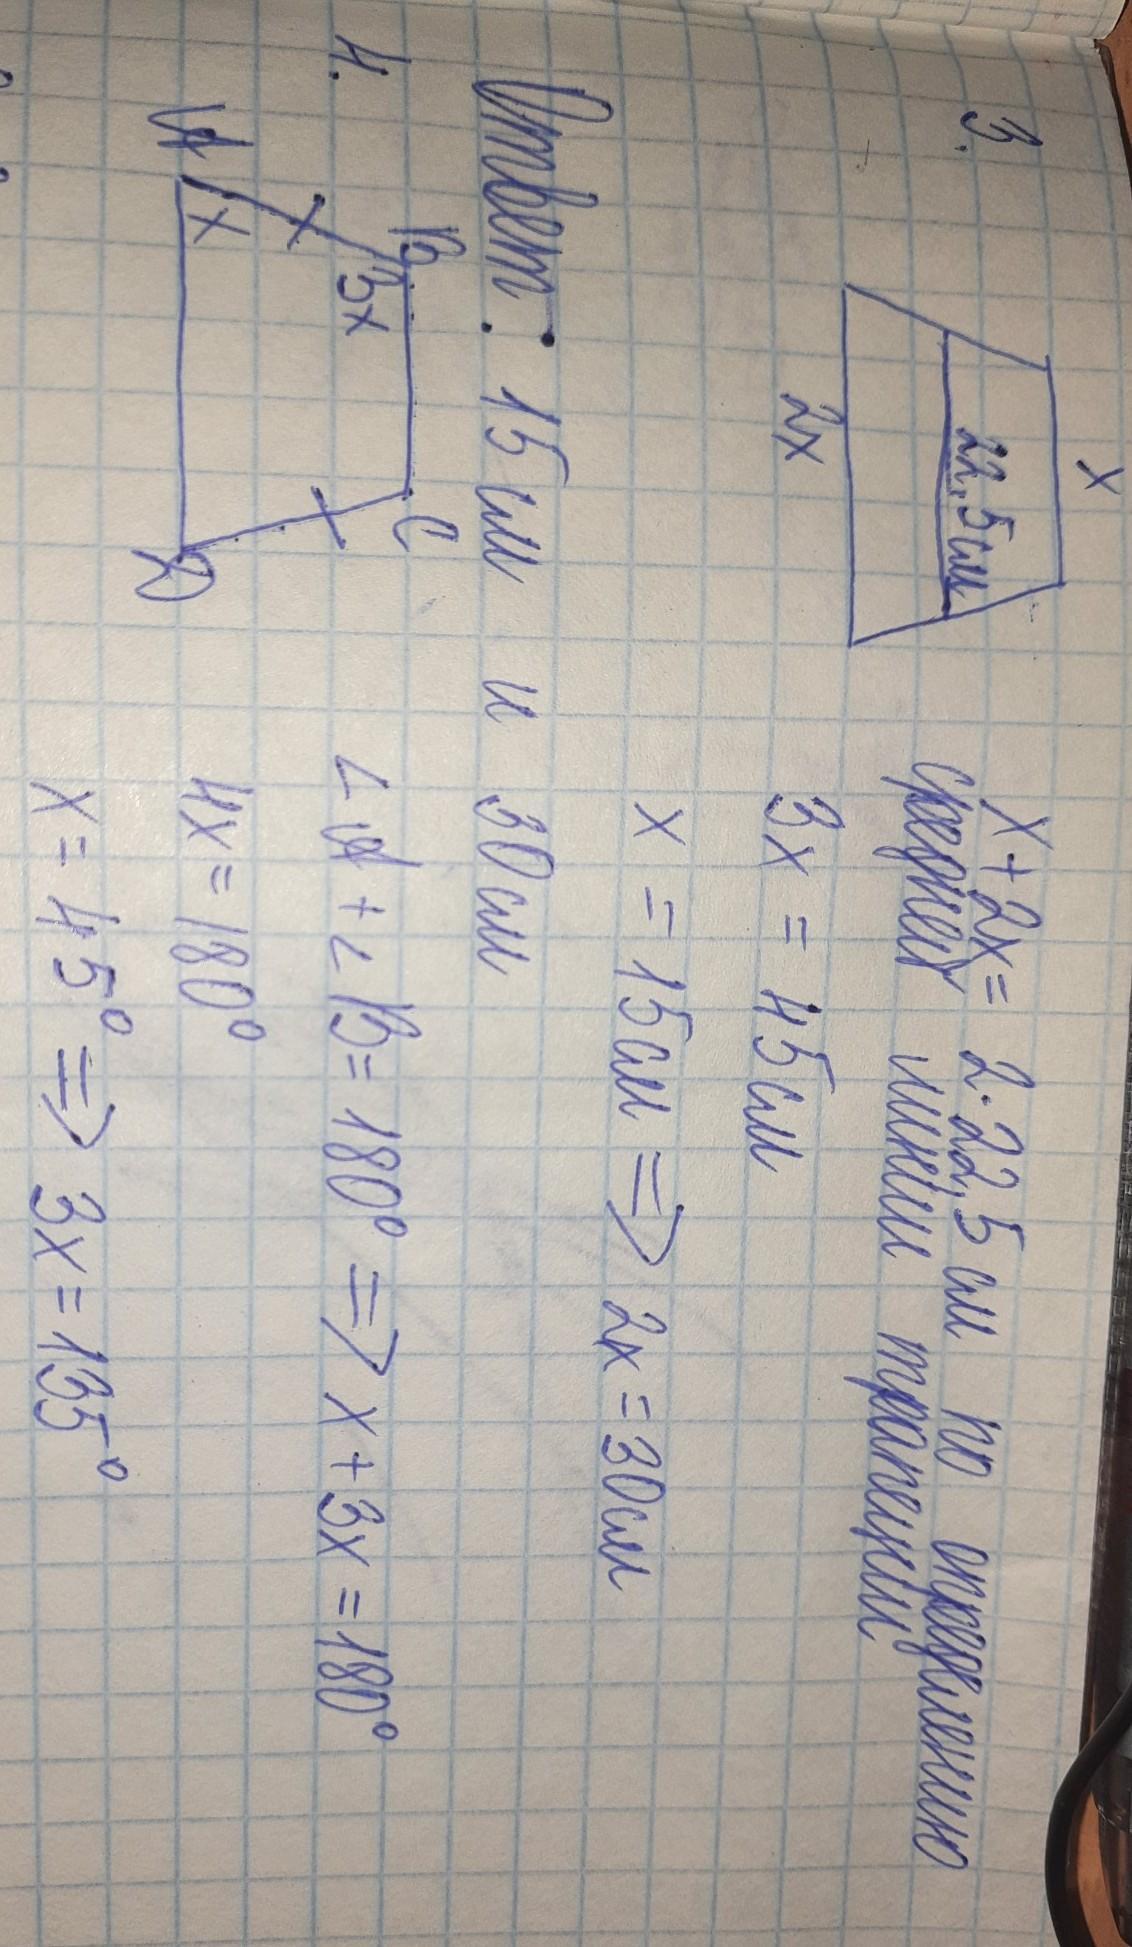 3.
x
22,5см
2x
x+2x= 2·22,5 см по определению
средней линии трапеции
3x = 45см
x = 15см => 2x = 30см
Ответ: 15 см и 30см
4.
B
C
3x
x
A
D
∠A + ∠B = 180° => x + 3x = 180°
4x = 180°
x = 45° => 3x = 135°